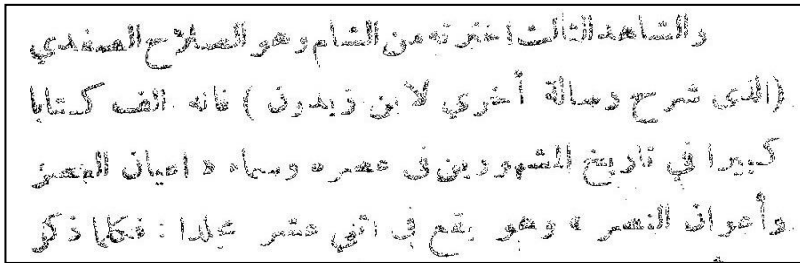 والشاهد الثالث اخترته من الشام وهو الصلاح الصفدي
(الذى شرح رسالة أخري لابن زيدون) فانه الف كتابا
كبيرا في تاريخ المشهورين فى عصره وسماه « اعيان العصر
وأعوان النصر » وهو يقع فى اثني عشر مجلدا : فكلما ذكر